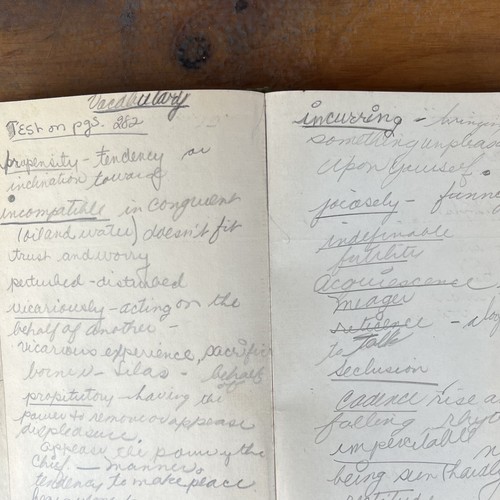 Vocabulary
Test on pgs. 282
propensity - tendency or
inclination toward
incompatible in congruent
(oil and water) doesn't fit
trust and worry
perturbed - disturbed
vicariously - acting on the
behalf of another -
vicarious experience, sacrifice
Silas - behalf
of
propitutory - having the
power to remove or appease
displeasure.
appease the
chief - manner
tendency to make peace
incurring - bringing
something unpleas
upon yourself
jocosely - funn
indefinable
futilite
acquiescence
meager
reticence - a
to talk
Seclusion
Cadence rise a
falling rhyt
being seen (hard